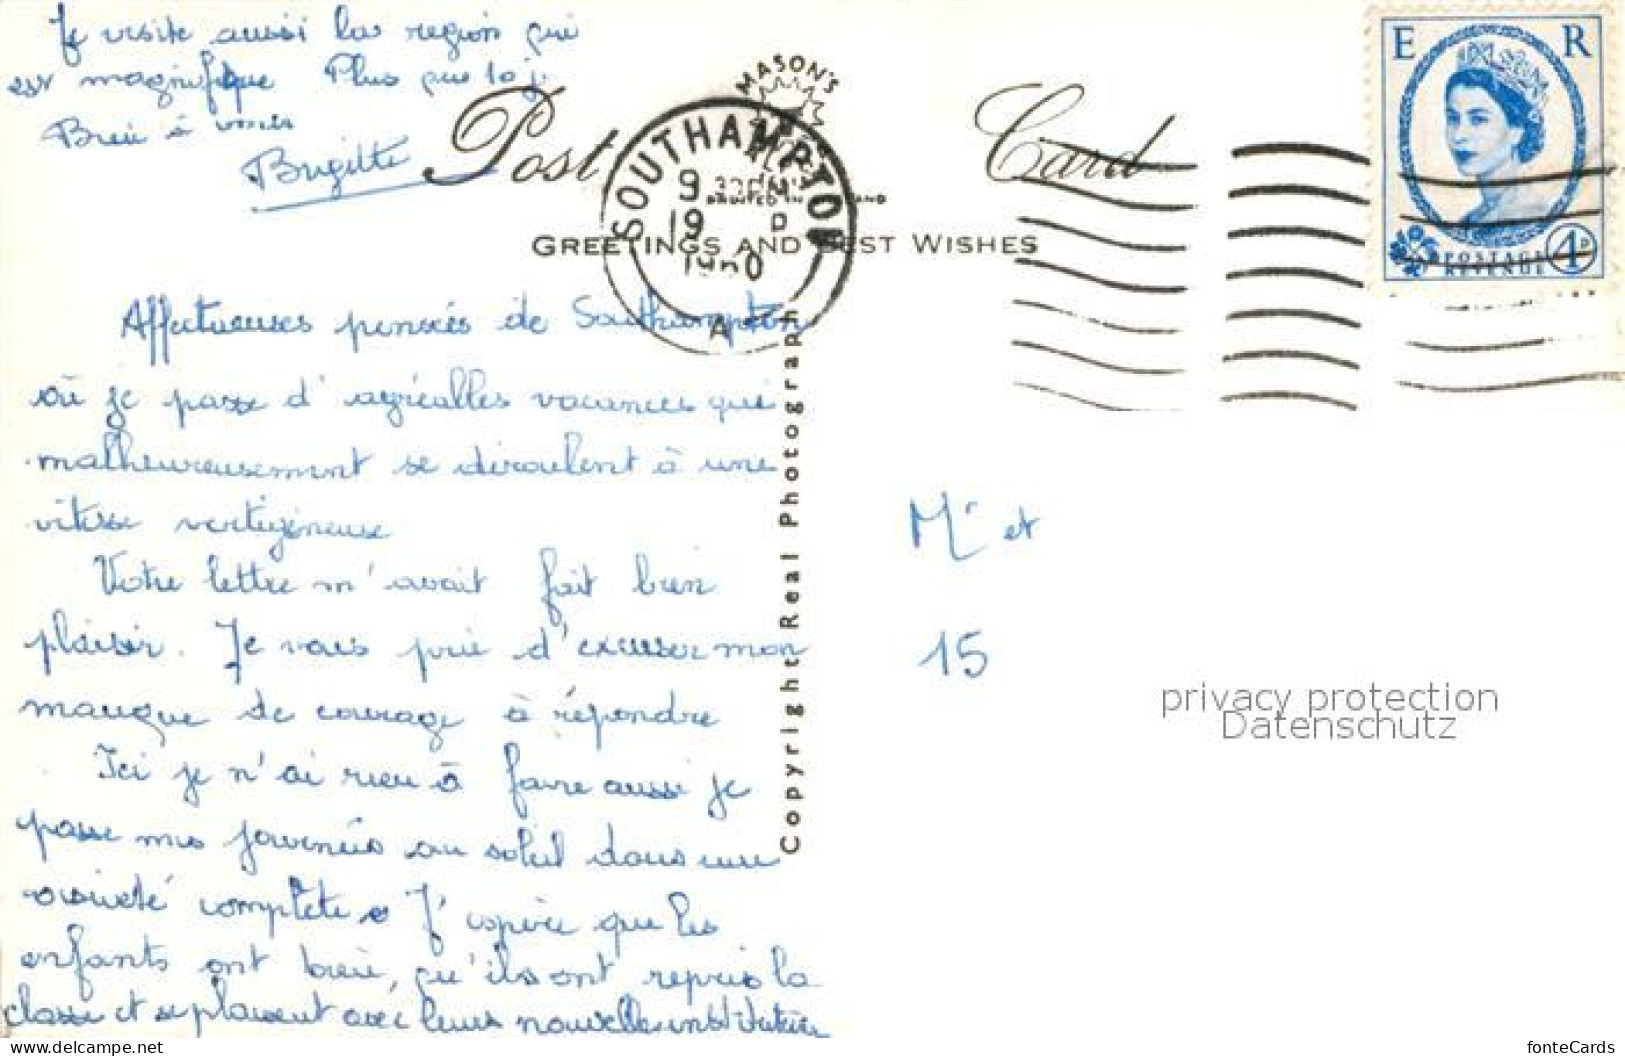 Je visite aussi la region qui
est magnifique Plus que 10 j.
Bien à vous
Brigitte
Post Card
MASON'S
SOUTHAMPTON
9
19
1960
A
GREETINGS AND BEST WISHES
E R
POSTAGE
REVENUE
4D
Affectueuses pensées de Southampton
où je passe d'agréables vacances qui
malheureusement se déroulent à une
vitesse vertigineuse
Votre lettre m'avait fait bien
plaisir. Je vous prie d'excuser mon
manque de courage à répondre
Ici je n'ai rien à faire aussi je
passe mes journées au soleil dans une
oisiveté complète. J'espère que les
enfants ont bien, qu'ils ont repris la
classe et se plaisent avec leurs nouvelle institutrice
Copyright Real Photograph
Mr et
15
privacy protection
Datenschutz
https://www.delcampe.net
fonteCards